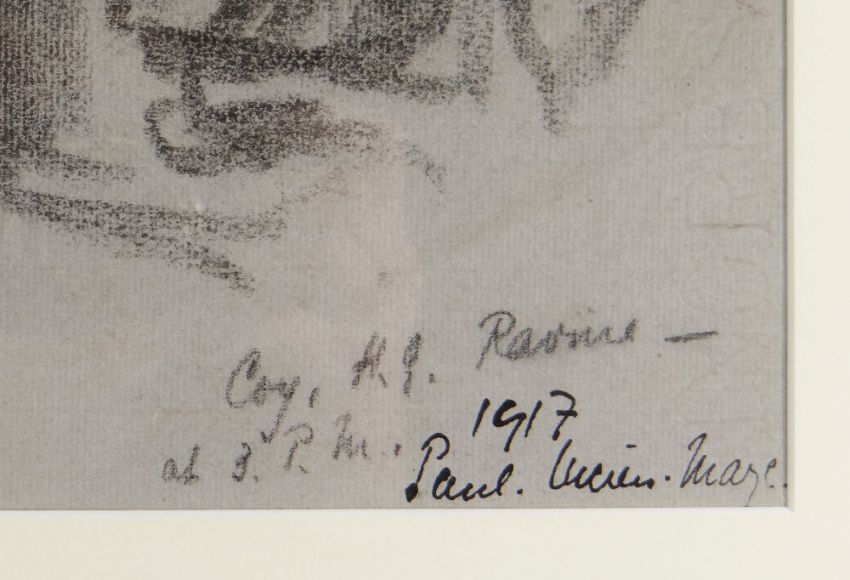 Coy, H.Q. Ravine —
1917
at 3. P. M.
Paul. Lucien. Maze.